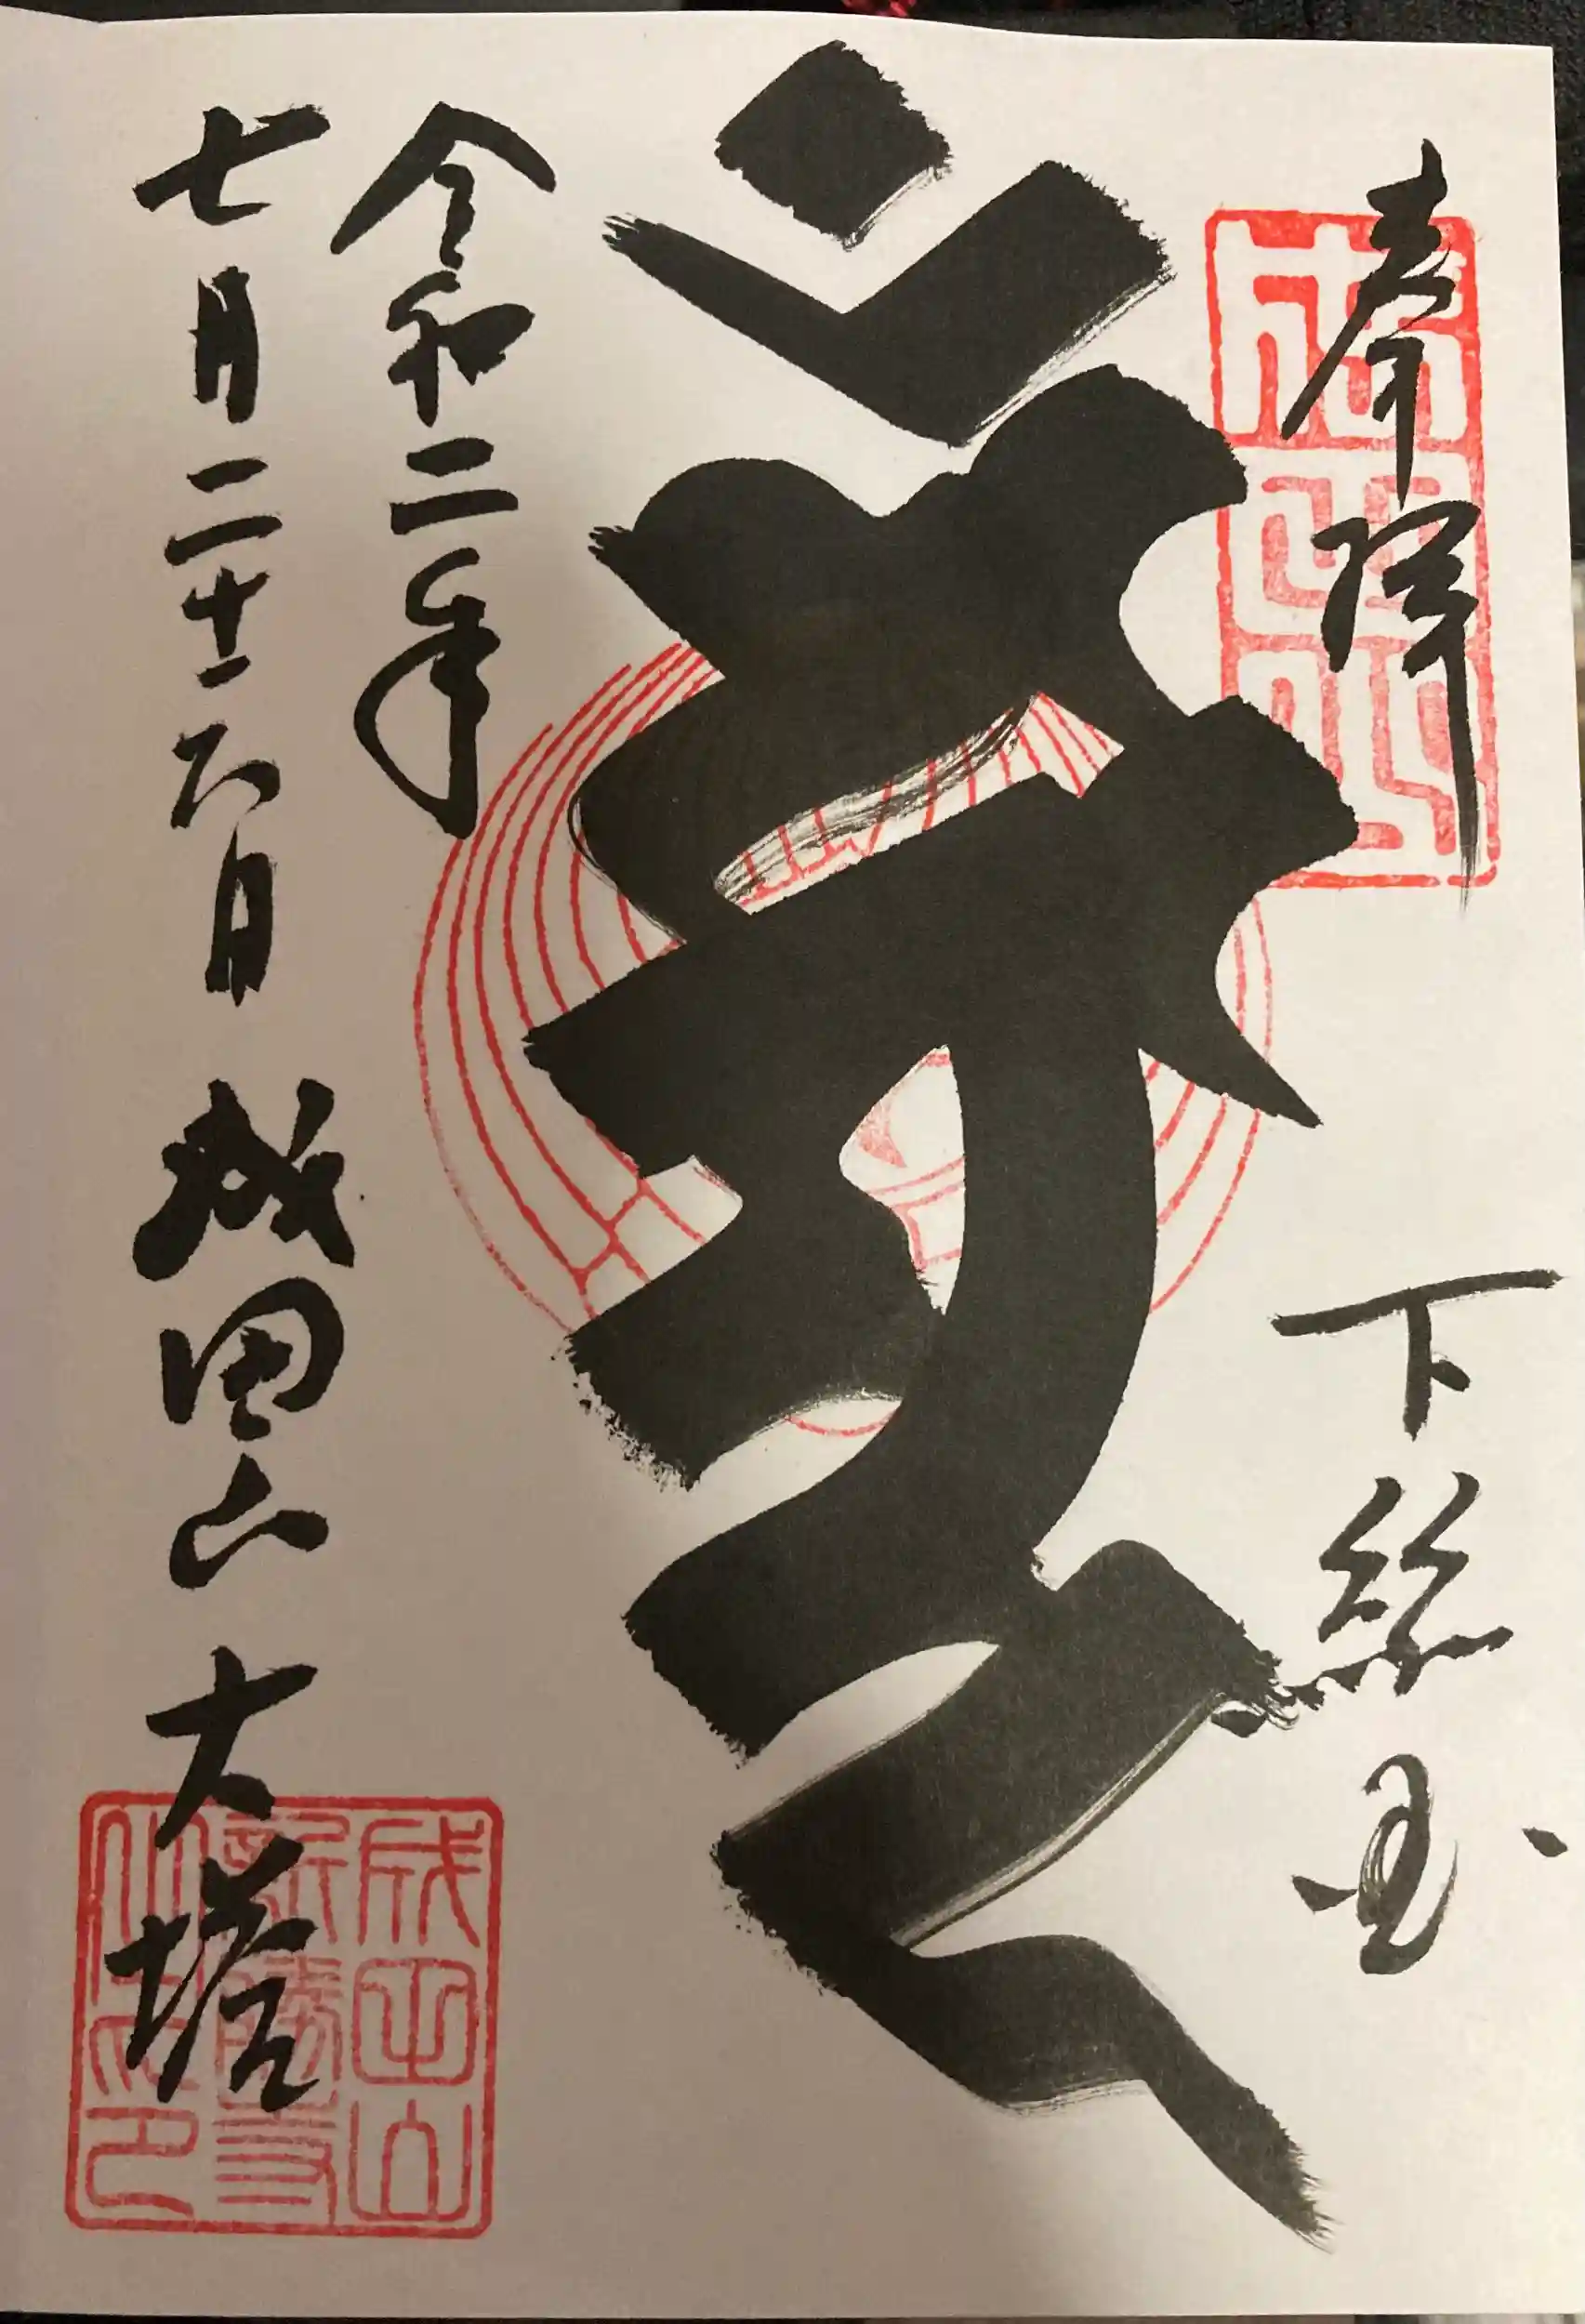 奉拝
成田山
下総国
令和二年
七月二十六日 成田山 大塔
成田山
新勝寺
之印